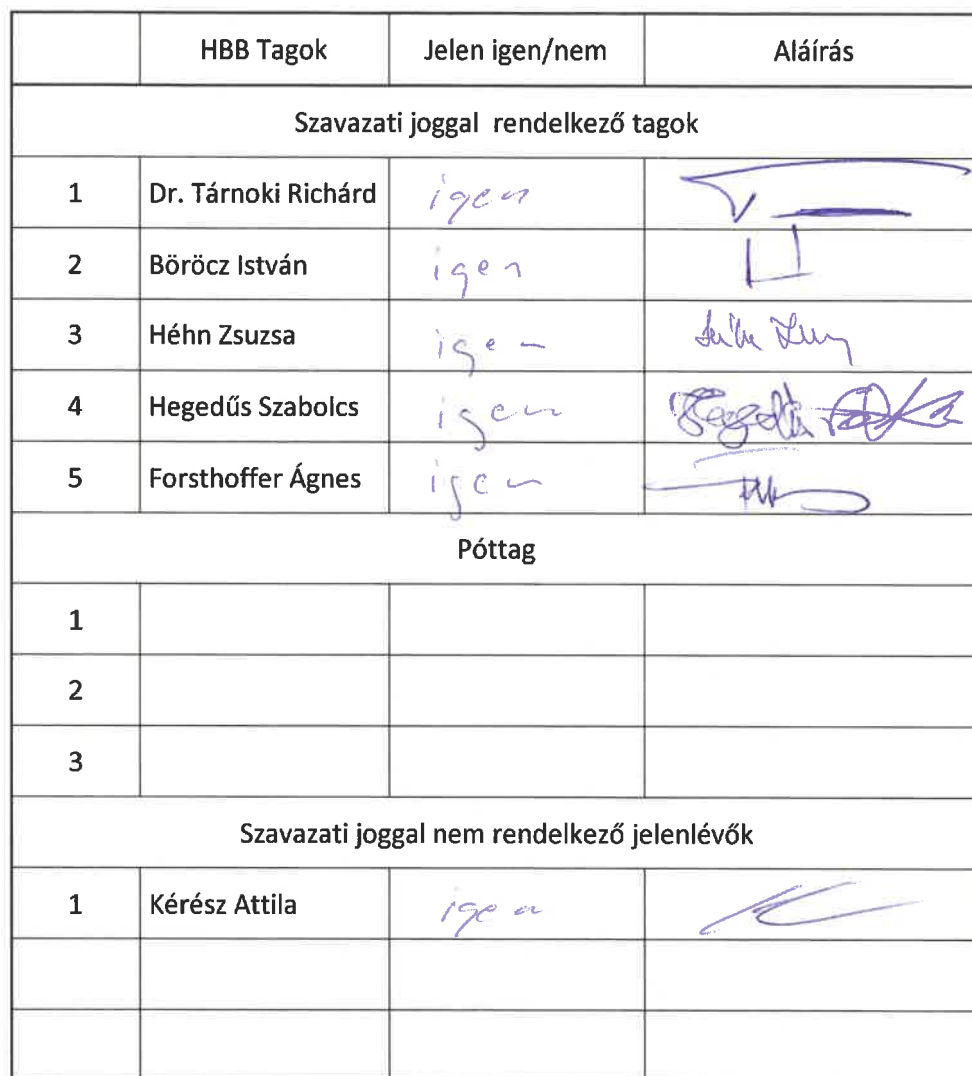 HBB Tagok Jelen igen/nem Aláírás
Szavazati joggal rendelkező tagok
1 Dr. Tárnoki Richárd igen
2 Böröcz István igen
3 Héhn Zsuzsa igen
4 Hegedűs Szabolcs igen
5 Forsthoffer Ágnes igen
Póttag
1
2
3
Szavazati joggal nem rendelkező jelenlévők
1 Kérész Attila igen